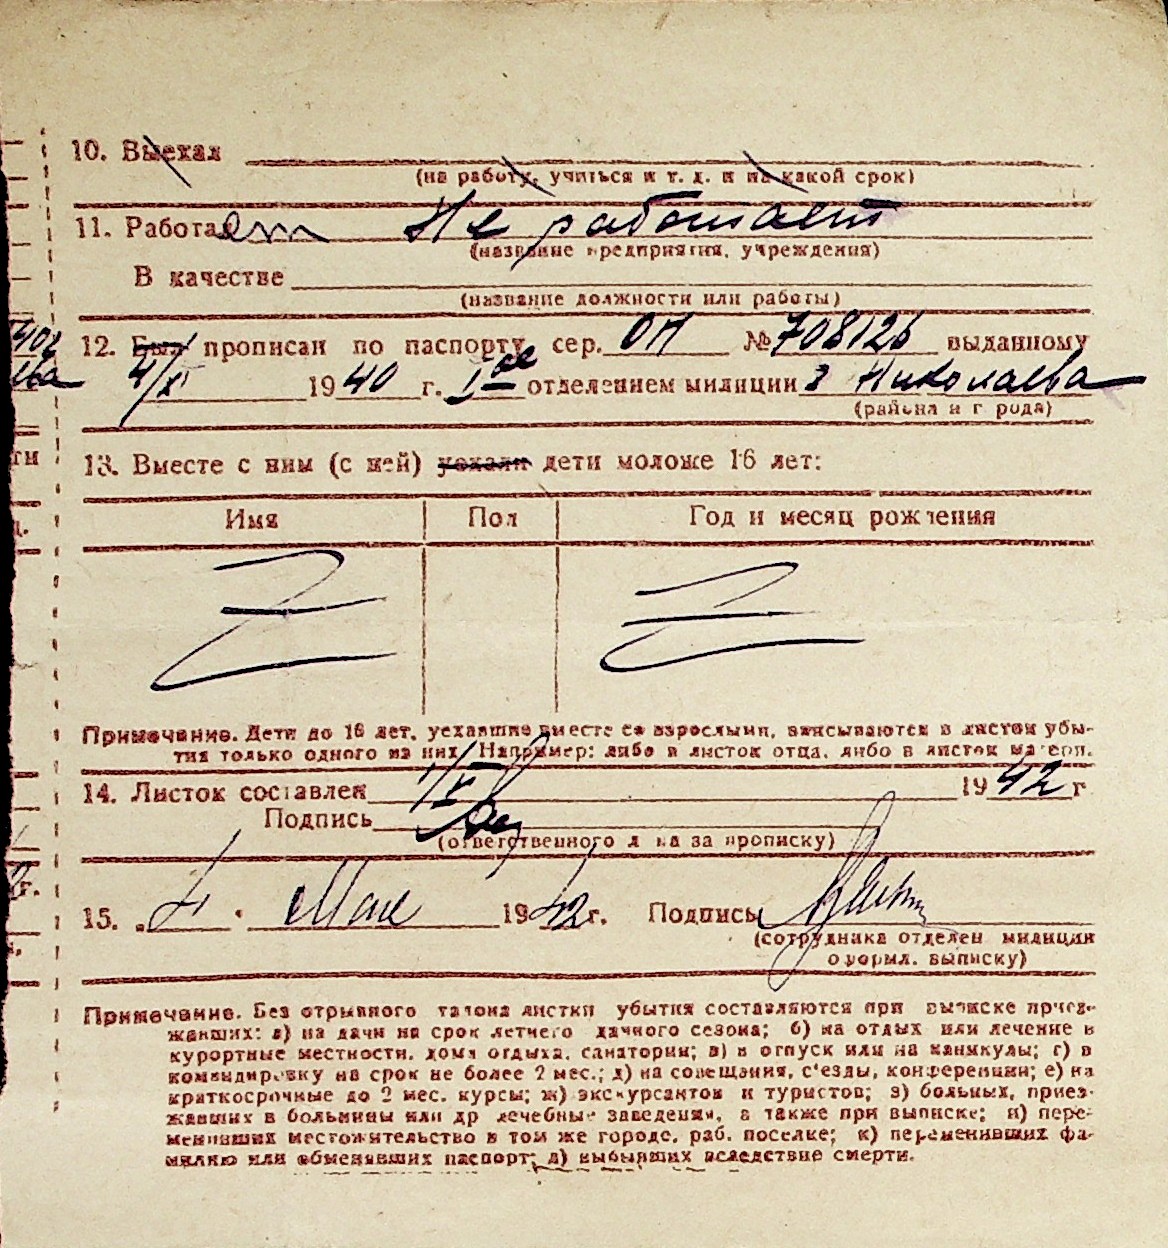 10. Выехал
(на работу, учиться и т. д. и на какой срок)
11. Работает Не работает
(название предприятия, учреждения)
В качестве
(название должности или работы)
12. Был прописан по паспорту сер. ОН № 708126 выданному
4/XI 1940 г. Iое отделением милиции г Николаева
(района и г рода)
13. Вместе с ним (с ней) уехали дети моложе 16 лет:
Имя Пол Год и месяц рождения
Примечание. Дети до 16 лет, уехавшие вместе со взрослыми, вписываются в листок убы-
тия только одного из них. Например: либо в листок отца, либо в листок матери.
14. Листок составлен 1/V 1942 г
Подпись
(ответственного л ца за прописку)
15. „4 . Мая 1942 г. Подпись
(сотрудника отделен милиции
оформл. выписку)
Примечание. Без отрывного талона листки убытия составляются при выписке приез-
жавших: а) на дачи на срок летнего дачного сезона; б) на отдых или лечение в
курортные местности, дома отдыха, санатории; в) в отпуск или на каникулы; г) в
командировку на срок не более 2 мес.; д) на совещания, с'езды, конференции; е) на
краткосрочные до 2 мес. курсы; ж) экскурсантов и туристов; з) больных, приез-
жавших в больницы или др лечебные заведения, а также при выписке; и) пере-
менивших местожительство в том же городе, раб. поселке; к) переменивших фа-
милию или обменявших паспорт; л) выбывших вследствие смерти.